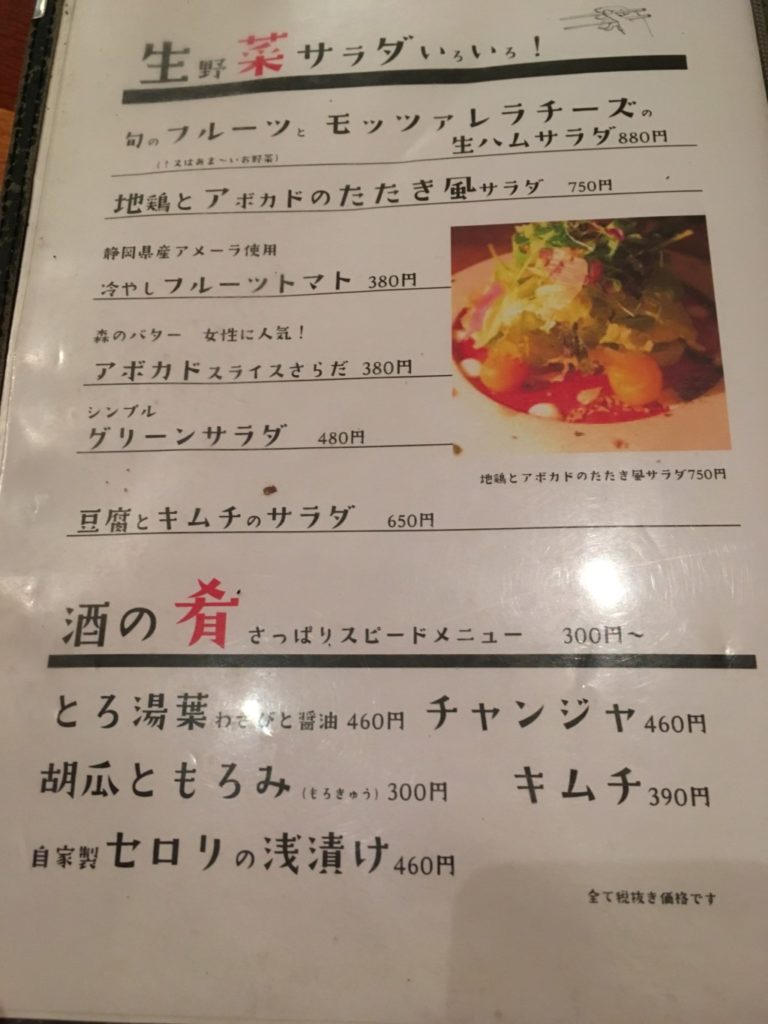 生野菜サラダいろいろ！
旬のフルーツとモッツァレラチーズの
(↑又はあま〜いお野菜)
生ハムサラダ880円
地鶏とアボカドのたたき風サラダ 750円
静岡県産アメーラ使用
冷やしフルーツトマト 380円
森のバター 女性に人気！
アボカドスライスさらだ 380円
シンプル
グリーンサラダ 480円
地鶏とアボカドのたたき風サラダ750円
豆腐とキムチのサラダ 650円
酒の肴 さっぱりスピードメニュー 300円〜
とろ湯葉わさびと醤油 460円 チャンジャ460円
胡瓜ともろみ(もろきゅう) 300円 キムチ390円
自家製セロリの浅漬け460円
全て税抜き価格です